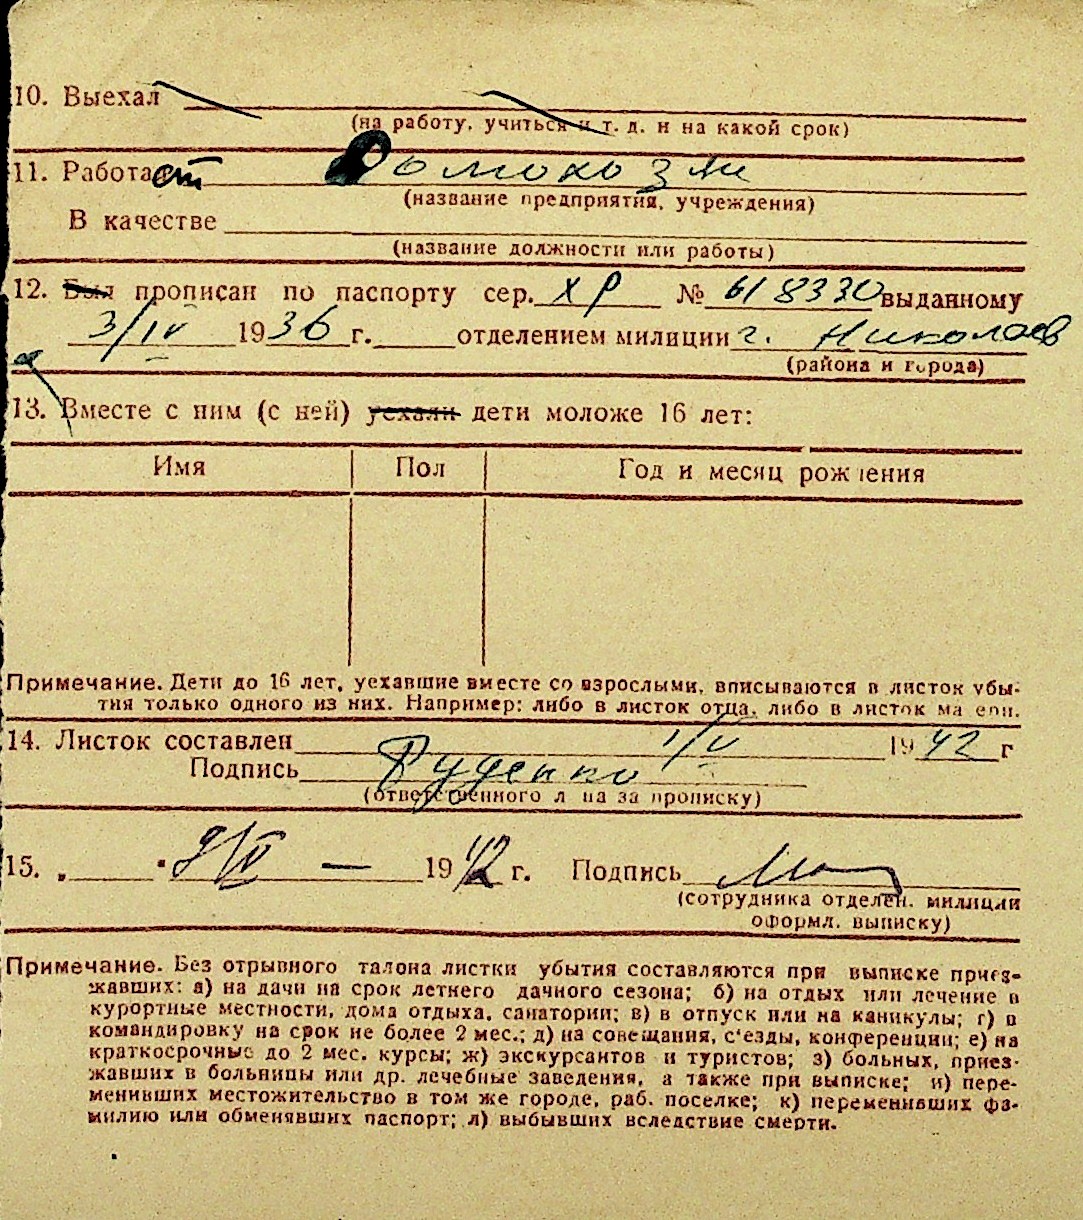 10. Выехал
(на работу, учиться и т. д. и на какой срок)
11. Работает Домохозяй
(название предприятия, учреждения)
В качестве
(название должности или работы)
12. Был прописан по паспорту сер. ХР № 618330 выданному
3/IV 1936 г. отделением милиции г. Николаев
(района и города)
13. Вместе с ним (с ней) уехали дети моложе 16 лет:
Имя Пол Год и месяц рождения
Примечание. Дети до 16 лет, уехавшие вместе со взрослыми, вписываются в листок убы-
тия только одного из них. Например: либо в листок отца, либо в листок матери.
14. Листок составлен 1/V 1942 г
Подпись Руденко
(ответственного лица за прописку)
15. „ " 1942 г. Подпись
(сотрудника отделен. милиции
оформл. выписку)
Примечание. Без отрывного талона листки убытия составляются при выписке приез-
жавших: а) на дачи на срок летнего дачного сезона; б) на отдых или лечение в
курортные местности, дома отдыха, санатории; в) в отпуск или на каникулы; г) в
командировку на срок не более 2 мес.; д) на совещания, с'езды, конференции; е) на
краткосрочные до 2 мес. курсы; ж) экскурсантов и туристов; з) больных, приез-
жавших в больницы или др. лечебные заведения, а также при выписке; и) пере-
менивших местожительство в том же городе, раб. поселке; к) переменивших фа-
милию или обменявших паспорт; л) выбывших вследствие смерти.